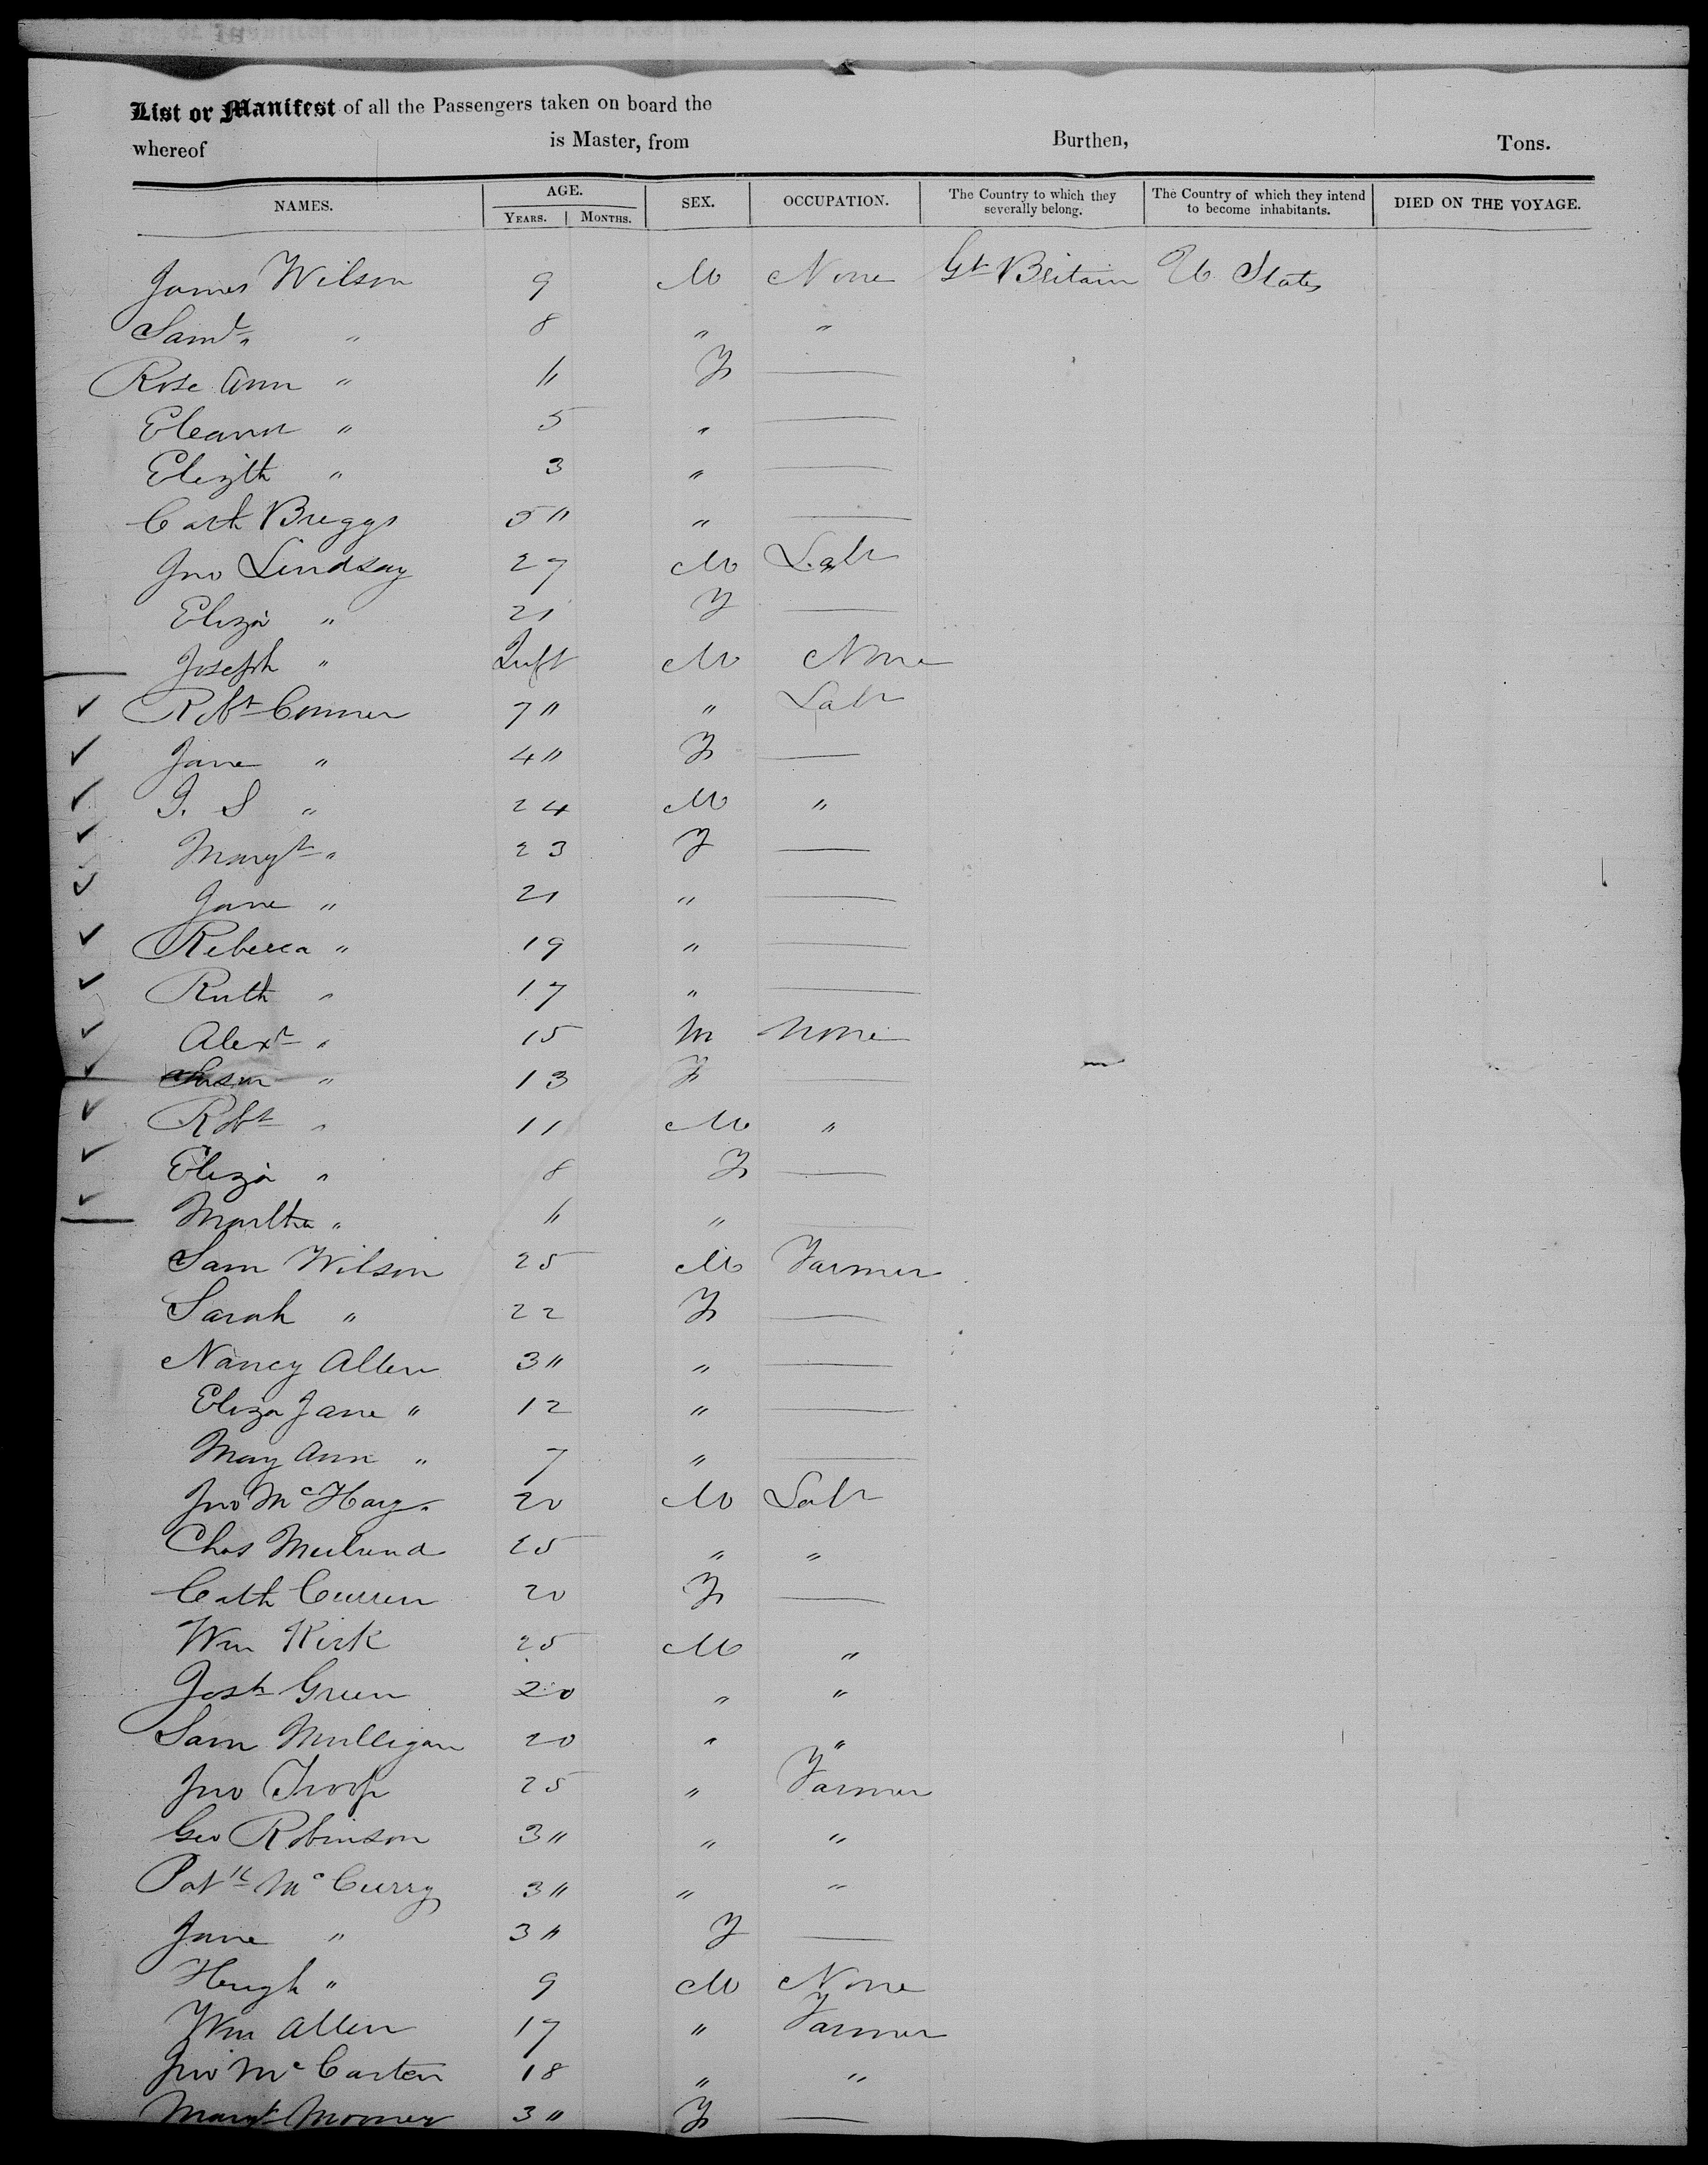 List or Manifest of all the Passengers taken on board the
whereof is Master, from Burthen, Tons.
NAMES. AGE. YEARS. MONTHS. SEX. OCCUPATION. The Country to which they severally belong. The Country of which they intend to become inhabitants. DIED ON THE VOYAGE.
James Wilson 9 M None Gt Britain U States
Saml " 8 " "
Rose Ann " 6 F —
Eleanor " 5 " —
Elizth " 3 " —
Cath Briggs 50 " —
Jno Lindsay 27 M Labr
Eliza " 21 F —
Joseph " Inft M None
Robt Conner 70 " Labr
Jane " 40 F —
J. S " 24 M "
Margt " 23 F —
Jane " 21 " —
Rebecca " 19 " —
Ruth " 17 " —
Alexr " 15 M None
Susan " 13 F —
Robt " 11 M "
Eliza " 8 F —
Martha " 6 " —
Sam Wilson 25 M Farmer
Sarah " 22 F —
Nancy Allen 30 " —
Eliza Jane " 12 " —
Mary Ann " 7 " —
Jno McHarg 20 M Labr
Chas 25 " "
Cath Curren 20 F —
Wm Kirk 25 M "
Josh Green 20 " "
Sam Mulligan 20 " "
Jno Troop 25 " Farmer
Geo Robinson 30 " "
Patk McCurry 30 " "
Jane " 30 F —
Hugh " 9 M None
Wm Allen 17 " Farmer
Jno McCarten 18 " "
Margt Mooney 30 F —